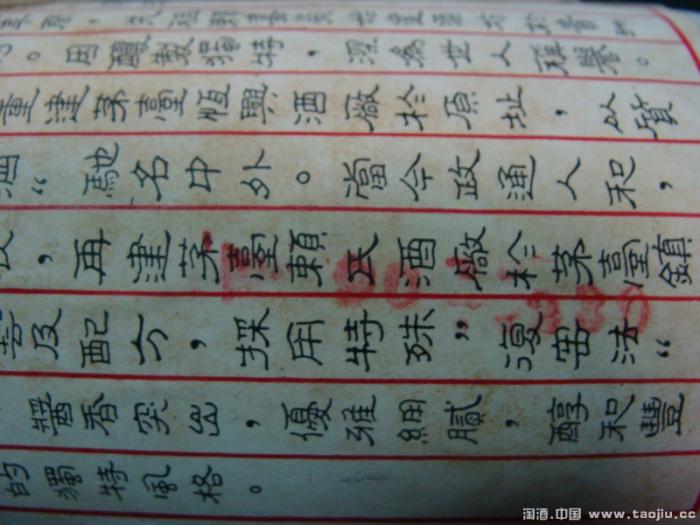 。因釀製獨特，深為世人稱譽。
重建茅臺恆興酒廠於原址，以質
酒“馳名中外。當今政通人和，
，再建茅臺賴氏酒廠於茅臺鎮
及配方，採用特殊”復窖法“
醬香突出，優雅細膩，醇和豐
的獨特風格。
淘酒.中国 www.taojiu.cc